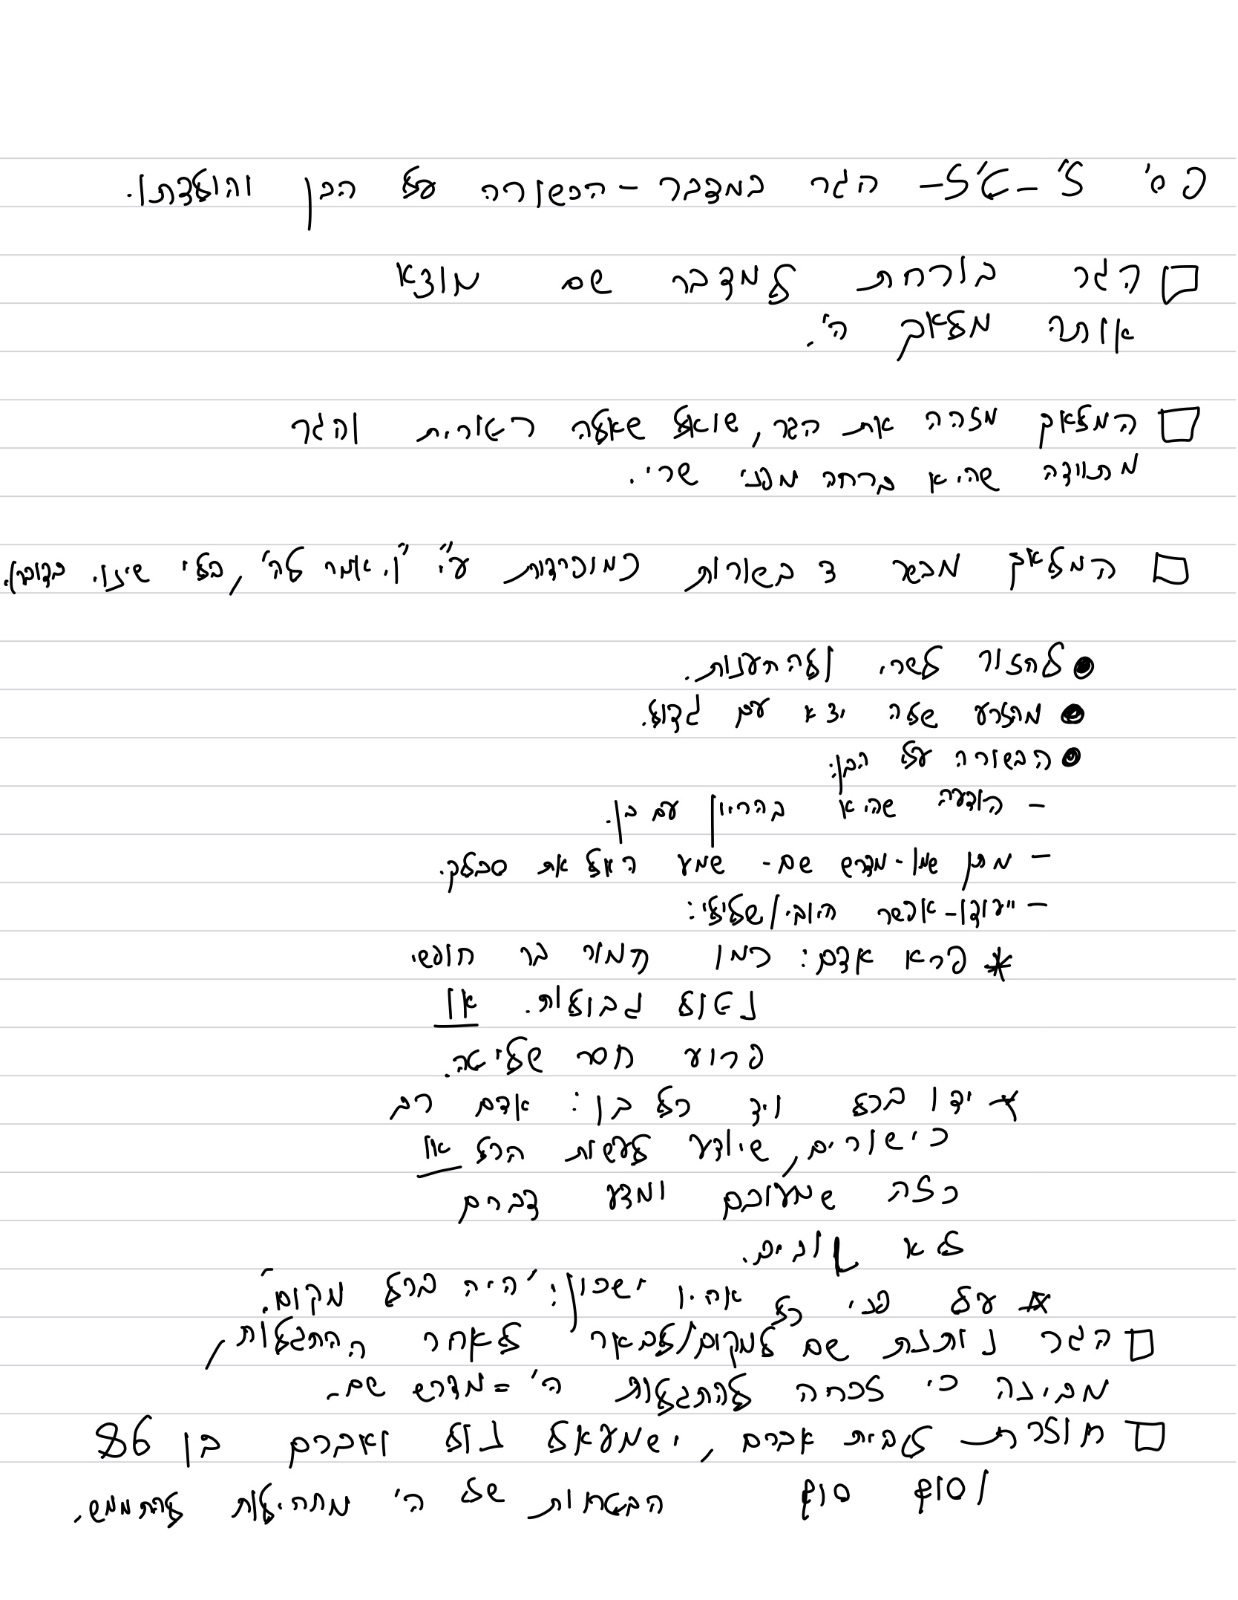 פס' ז'-ט"ז- הגר במדבר - הבשורה על הבן והולדתו.
הגר בורחת למדבר שם מוצא
אותה מלאך ה'.
המלאך מזהה את הגר, שואל שאלה רטורית והגר
מתוודה שהיא ברחה מפני שרי.
המלאך מבשר 3 בשורות כמופרדות ע"י "ויאמר לה", בלי שינוי בדובר).
לחזור לשרי ולהתענות.
מהזרע שלה יצא עם גדול.
הבשורה על הבן:
- הודעה שהיא בהריון עם בן.
- מתן שמו - מדרש שם - שמע האל את סבלך.
- ייעודו - אפשר חיובי/שלילי:
* פרא אדם: כמו חמור בר חופשי
נטול גבולות. או
פרוע חסר שליטה.
* ידו בכל ויד כל בו: אדם רב
כישורים, שיודע לעשות הכל או
כזה שמעורבב ומדע דברים
לא טובים.
* על פני כל אחיו ישכון: יהיה בכל מקום.
הגר נותנת שם למקום/לבאר לאחר ההתגלות,
מבינה כי זכתה להתגלות ה' = מדרש שם -
חוזרת לבית אברם, ישמעאל נולד ואברם בן 86
וסוף סוף הבטחות של ה' מתחילות להתממש.